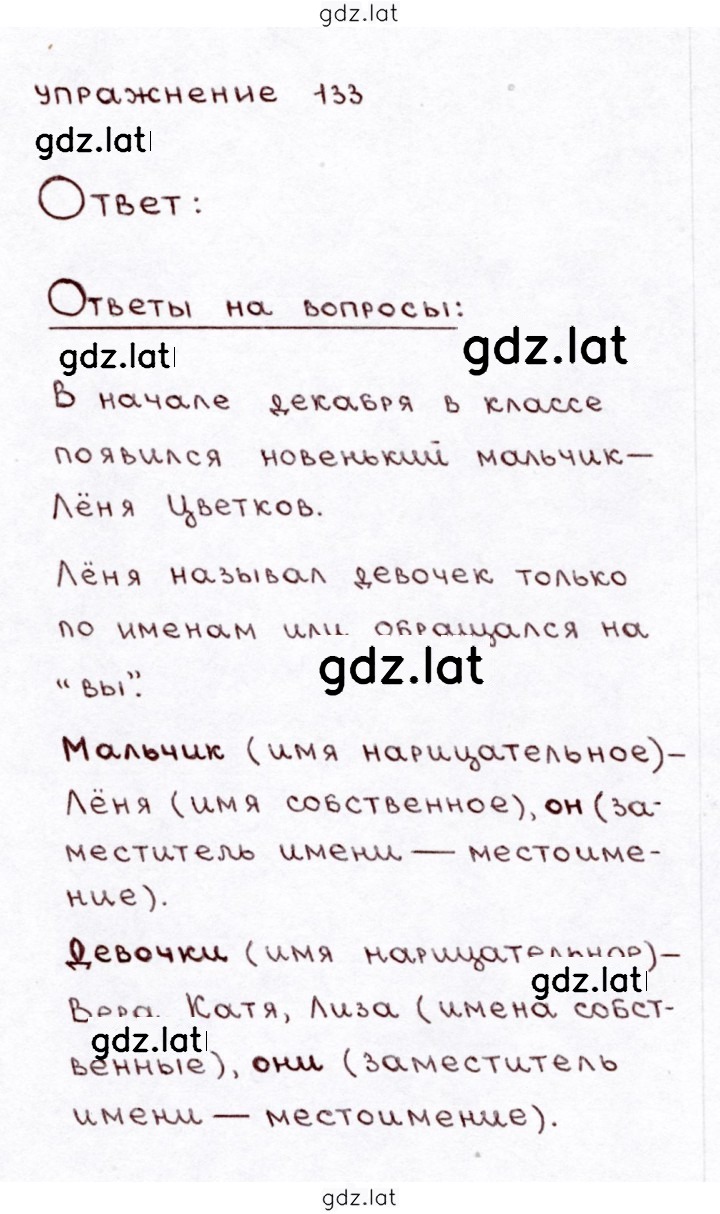 gdz.lat
упражнение 133
gdz.lat
Ответ:
Ответы на вопросы:
gdz.lat
gdz.lat
В начале декабря в классе
появился новенький мальчик—
Лёня Цветков.
Лёня называл девочек только
по именам или обращался на
gdz.lat
“вы”.
Мальчик (имя нарицательное)–
Лёня (имя собственное), он (за-
меститель имени — местоиме-
ние).
Девочки (имя нарицательное)–
gdz.lat
Вера, Катя, Лиза (имена собст-
gdz.lat
венные), они (заместитель
имени — местоимение).
gdz.lat